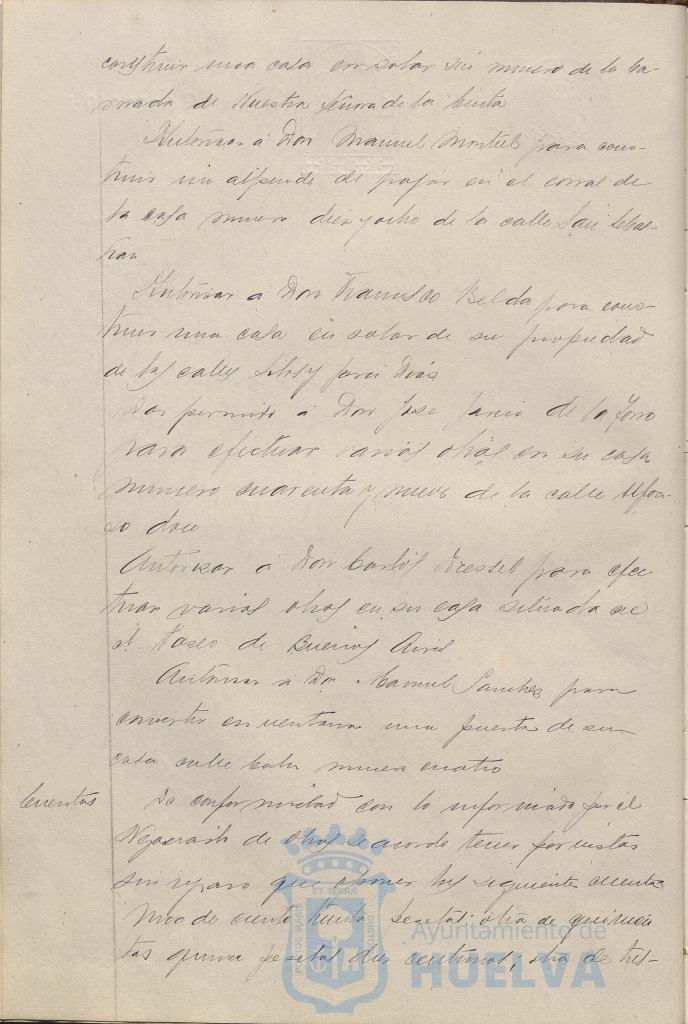 construir una casa en solar sin numero de la ba-
rriada de Nuestra Señora de la Cinta
Autorizar á Don Manuel Montiel para cons-
truir un alpende de  en el corral de
la casa numero diez y ocho de la calle San Sebas-
tian
Autorizar a Don Francisco Belda para cons-
truir una casa en solar de su propiedad
de las calles  y  Dias
Dar permiso á Don Jose Garcia de la Torre
para efectuar varias obras en su casa
numero cuarenta y nueve de la calle Alfon-
so doce
Autorizar á Don Carlos  para efec-
tuar varias obras en su casa situada en
el Paseo de Buenos Aires
Autorizar a Don Manuel Sanchez para
convertir en ventana una puerta de su
casa calle  numero cuatro
Cuentas
De conformidad con lo informado por el
Negociado de obras se acordo tener por vistas
sin reparo que oponer las siguientes cuentas
Una de ciento treinta pesetas: otra de quinien-
tas quince pesetas diez centimos; otra de tres-
ET TERRÆ
PORTUS MARIS
CUSTODIA
Ayuntamiento de
HUELVA